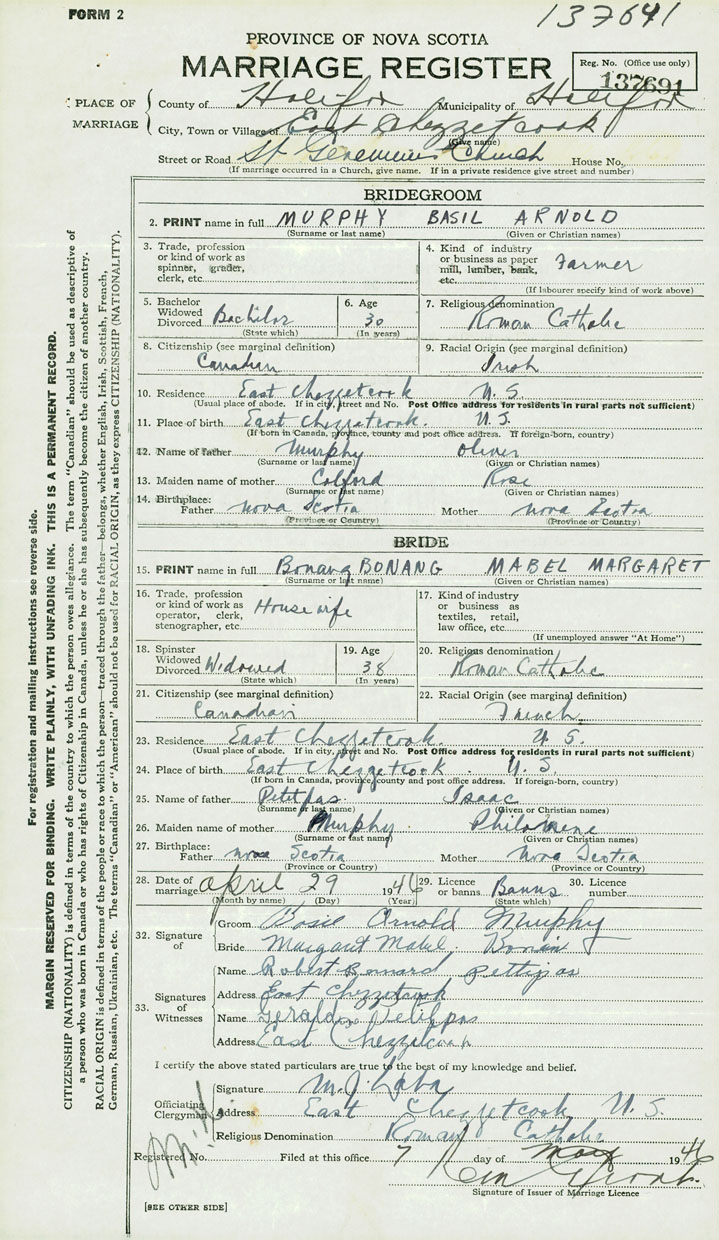 FORM 2
137641
PROVINCE OF NOVA SCOTIA
MARRIAGE REGISTER
Reg. No. (Office use only)
137691
PLACE OF MARRIAGE
County of Halifax Municipality of Halifax
City, Town or Village of East Chezzetcook
(Give name)
Street or Road St Church House No.
(If marriage occurred in a Church, give name. If in a private residence give street and number)
BRIDEGROOM
2. PRINT name in full MURPHY BASIL ARNOLD
(Surname or last name) (Given or Christian names)
3. Trade, profession or kind of work as spinner, grader, clerk, etc.
4. Kind of industry or business as paper mill, lumber, bank, etc. Farmer
(If labourer specify kind of work above)
5. Bachelor Widowed Divorced Bachelor
(State which)
6. Age 30
(In years)
7. Religious denomination
Roman Catholic
8. Citizenship (see marginal definition)
Canadian
9. Racial Origin (see marginal definition)
Irish
10. Residence East Chezzetcook N. S.
(Usual place of abode. If in city, street and No. Post Office address for residents in rural parts not sufficient)
11. Place of birth East Chezzetcook. N. S.
(If born in Canada, province, county and post office address. If foreign-born, country)
12. Name of father Murphy Oliver
(Surname or last name) (Given or Christian names)
13. Maiden name of mother Colford Rose
(Surname or last name) (Given or Christian names)
14. Birthplace:
Father Nova Scotia Mother Nova Scotia
(Province or Country) (Province or Country)
BRIDE
15. PRINT name in full Bonang BONANG MABEL MARGARET
(Surname or last name) (Given or Christian names)
16. Trade, profession or kind of work as operator, clerk, stenographer, etc. Housewife
17. Kind of industry or business as textiles, retail, law office, etc.
(If unemployed answer "At Home")
18. Spinster Widowed Divorced Widowed
(State which)
19. Age 38
(In years)
20. Religious denomination
Roman Catholic
21. Citizenship (see marginal definition)
Canadian
22. Racial Origin (see marginal definition)
French
23. Residence East Chezzetcook. N. S.
(Usual place of abode. If in city, street and No. Post Office address for residents in rural parts not sufficient)
24. Place of birth East Chezzetcook. N. S.
(If born in Canada, province, county and post office address. If foreign-born, country)
25. Name of father Petitpas Isaac
(Surname or last name) (Given or Christian names)
26. Maiden name of mother Murphy Philomene
(Surname or last name) (Given or Christian names)
27. Birthplace:
Father Nova Scotia Mother Nova Scotia
(Province or Country) (Province or Country)
28. Date of marriage April 29 1946
(Month by name) (Day) (Year)
29. Licence or banns Banns
(State which)
30. Licence number
32. Signature of
Groom Basil Arnold Murphy
Bride Margaret Mabel Bonin
33. Signatures of Witnesses
Name Robert Bernard Pettipas
Address East Chezzetcook
Name Gerald Petitpas
Address East Chezzetcook
I certify the above stated particulars are true to the best of my knowledge and belief.
Officiating Clergyman
Signature M. J. Laba
Address East Chezzetcook N. S.
Religious Denomination Roman Catholic
Registered No. Filed at this office 7 day of May 1946
Signature of Issuer of Marriage Licence
[SEE OTHER SIDE]
For registration and mailing instructions see reverse side.
MARGIN RESERVED FOR BINDING. WRITE PLAINLY, WITH UNFADING INK. THIS IS A PERMANENT RECORD.
CITIZENSHIP (NATIONALITY) is defined in terms of the country to which the person owes allegiance. The term "Canadian" should be used as descriptive of
a person who was born in Canada or who has rights of Citizenship in Canada, unless he or she has subsequently become the citizen of another country.
RACIAL ORIGIN is defined in terms of the people or race to which the person—traced through the father—belongs, whether English, Irish, Scottish, French,
German, Russian, Ukrainian, etc. The terms "Canadian" or "American" should not be used for RACIAL ORIGIN, as they express CITIZENSHIP (NATIONALITY).